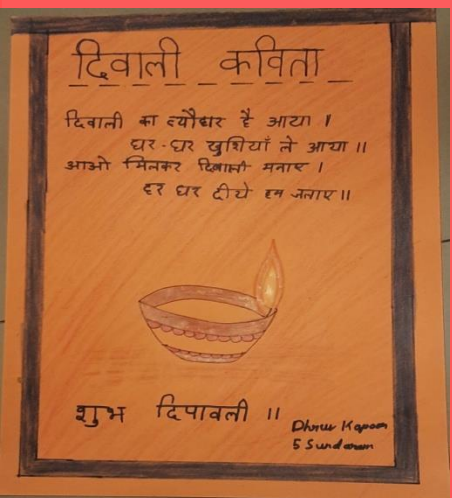 दिवाली कविता
दिवाली का त्यौहार है आया ।
घर-घर खुशियाँ ले आया ॥
आओ मिलकर दिवाली मनाए ।
हर घर दीये हम जलाए ॥
शुभ दिपावली ॥
Dhruv Kapoor
5 Sundaram